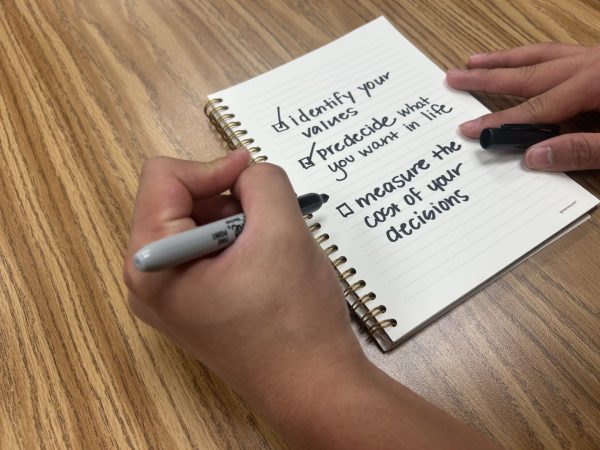 identify your
values
predecide what
you want in life
measure the
cost of your
decisions